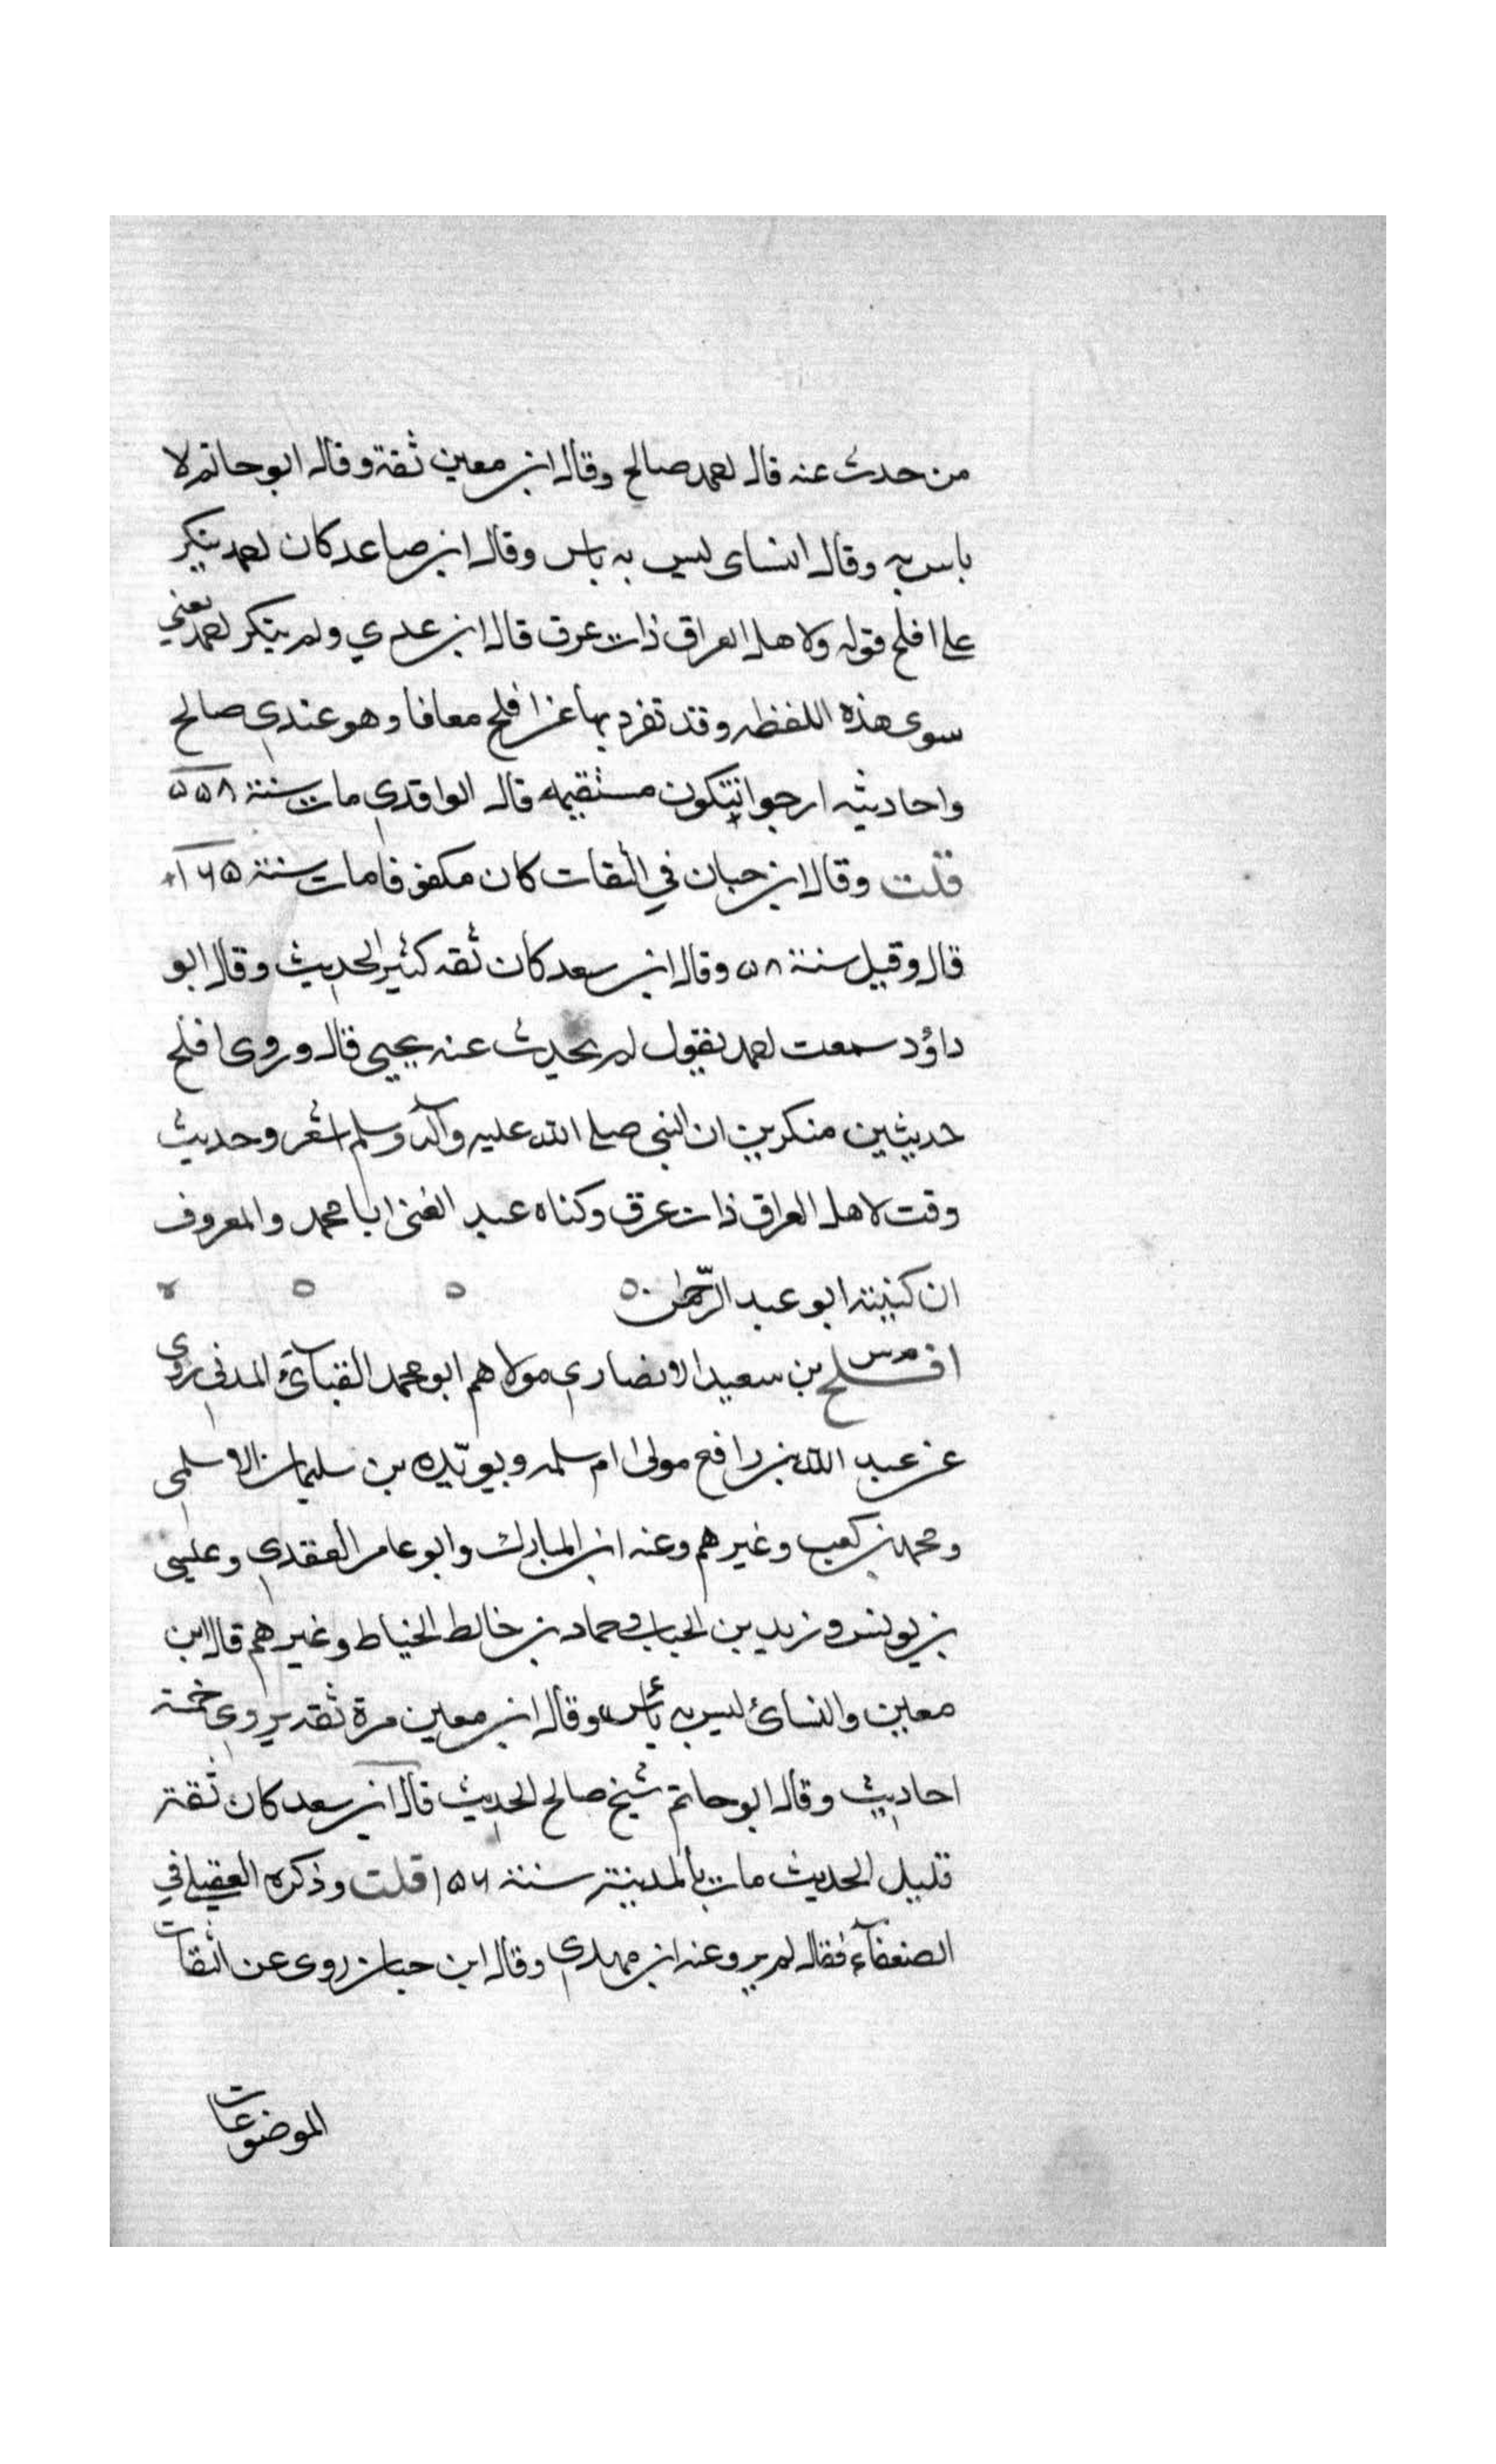 من حدث عنه قال احمد صالح وقال ابن معين ثقة وقال ابو حاتم لا
باس به وقال النساى ليس به باس وقال ابن صاعد كان احمد ينكر
على افلح قوله ولاهل العراق ذات عرق قال ابن عدي ولم ينكر احمد يعني
سوى هذه اللفظه وقد تفرد بها عن افلح معافا وهو عندي صالح
واحاديثه ارجوا ان تكون مستقيمه قال الواقدي مات سنة
قلت وقال ابن حبان في الثقات كان مكفوفا مات سنة ١٦٥
قال وقيل سنة ٥٨ وقال ابن سعد كان ثقه كثير الحديث وقال ابو
داؤد سمعت احمد يقول لم يحدث عنه يحيى قال وروى افلح
حديثين منكرين ان النبي صلى الله عليه وآله وسلم اشعر وحديث
وقت لاهل العراق ذات عرق وكناه عبد الغنى ابا محمد والمعروف
ان كنيته ابو عبد الرحمن
افلح بن سعيد الانصاري مولاهم ابو محمد القبائي المدني روى
عن عبد الله بن رافع مولى ام سلمه وبريده بن سليمان الاسلمي
ومحمد بن كعب وغيرهم وعنه ابن المبارك وابو عامر العقدي وعليى
بن يونس وزيد بن الحباب وحماد بن خالط الخياط وغيرهم قال ابن
معين والنسائ ليس به بأس وقال ابن معين مرة ثقه يروي خمسة
احاديث وقال ابو حاتم شيخ صالح الحديث قال ابن سعد كان ثقة
قليل الحديث مات بالمدينة سنة ١٥٦ قلت وذكره العقيلي في
الضعفآء فقال لم يرو عنه ابن مهدي وقال ابن حبان روى عن الثقات
الموضوعات